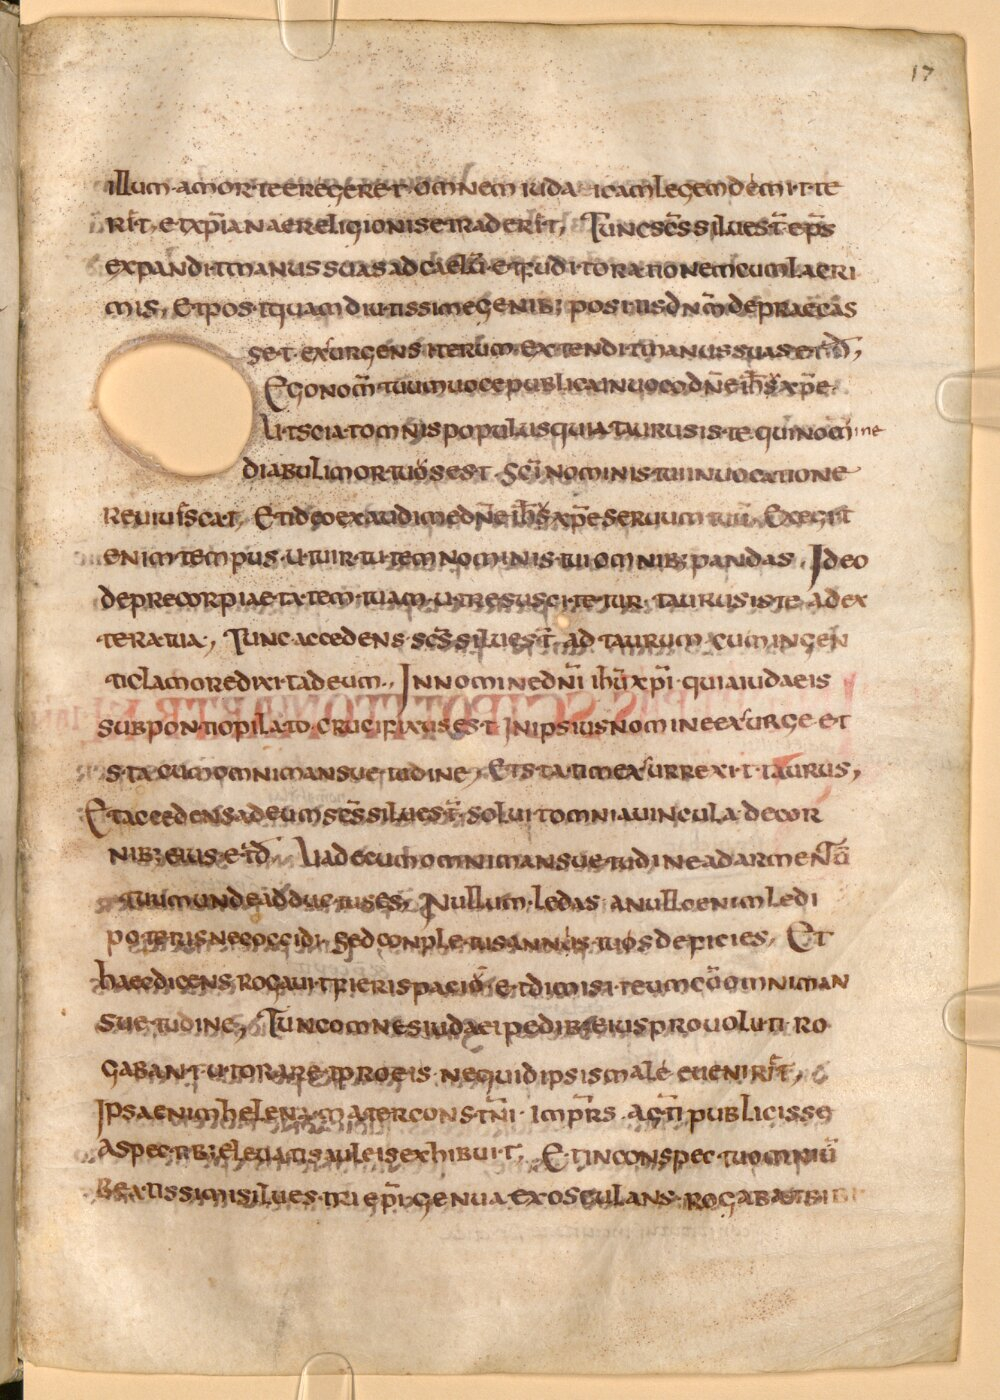 17
illum amorte eregeret omnem iudaicam legem demitte
rit, et xp̄ianae religionise traderit, Tunc sc̄s siluest̄ ep̄s
expandit manus suas ad caelū et fudit orationem cum lacri
mis, Et postquam diutissime genib; positus dnm̄ depraecas
set exurgens iterum extendit manus suas et d̄,
Ego nom̄ tuum uoce publica inuoco dn̄e ih̄s xp̄e
Ut sciat omnis populus quia taurus iste qui nomine
diabuli mortuos est sc̄i nominis tui inuocatione
reuiuiscat, Et ideo exaudi me dn̄e ih̄s xp̄e seruum tuū Exegit
enim tempus ut uirtutem nominis tui omnib; pandas, Ideo
deprecor pietatem tuam ut resuscitetur taurus iste ad ex
tera tua, Tunc accedens sc̄s siluest̄ ad taurum cum ingen
ti clamore dixit ad eum., In nomine dn̄i ih̄u xp̄i qui a iudaeis
sub pontio pilato crucifixus est In ipsius nomine exurge et
sta cum omni mansuetudine, Et statim exsurrexit taurus,
Et accedens ad eum sc̄s siluest̄ soluit omnia uincula de cor
nib; eius et d̄ Uade cum omni mansuetudine ad armentū
tuum unde adductus es, Nullum ledas a nullo enim ledi
poteris nec occidi sed conple tus annos tuos deficies, Et
haec dicens rogauit fieri spaciō et dimisit eum cū omni man
suetudine, Tunc omnes iudaei pedib; eius prouoluti ro
gabant ut orare pro eis ne quid ipsis male euenirit,
Ipsa enim helena mater constn̄i imp̄rs acti publicisse
aspectib; eleuatis auleis exhibuit, Et in conspectu omniū
beatissimi siluestri ep̄i genua exosculans rogabat sibi